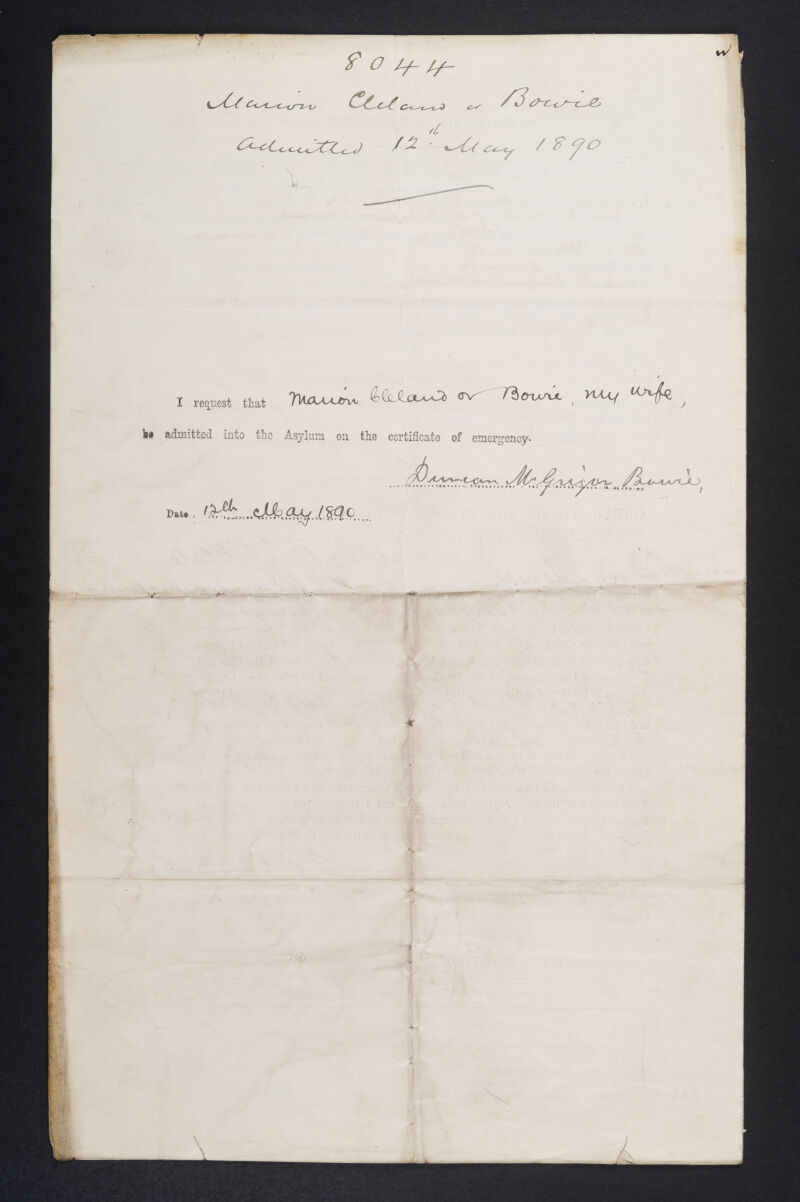 8044
Marion Cleland or Bowie
admitted 12th May 1890
I request that Marion Cleland or Bowie, my wife,
be admitted into the Asylum on the certificate of emergency.
Duncan McGrigor Bowie,
Date 12th May 1890